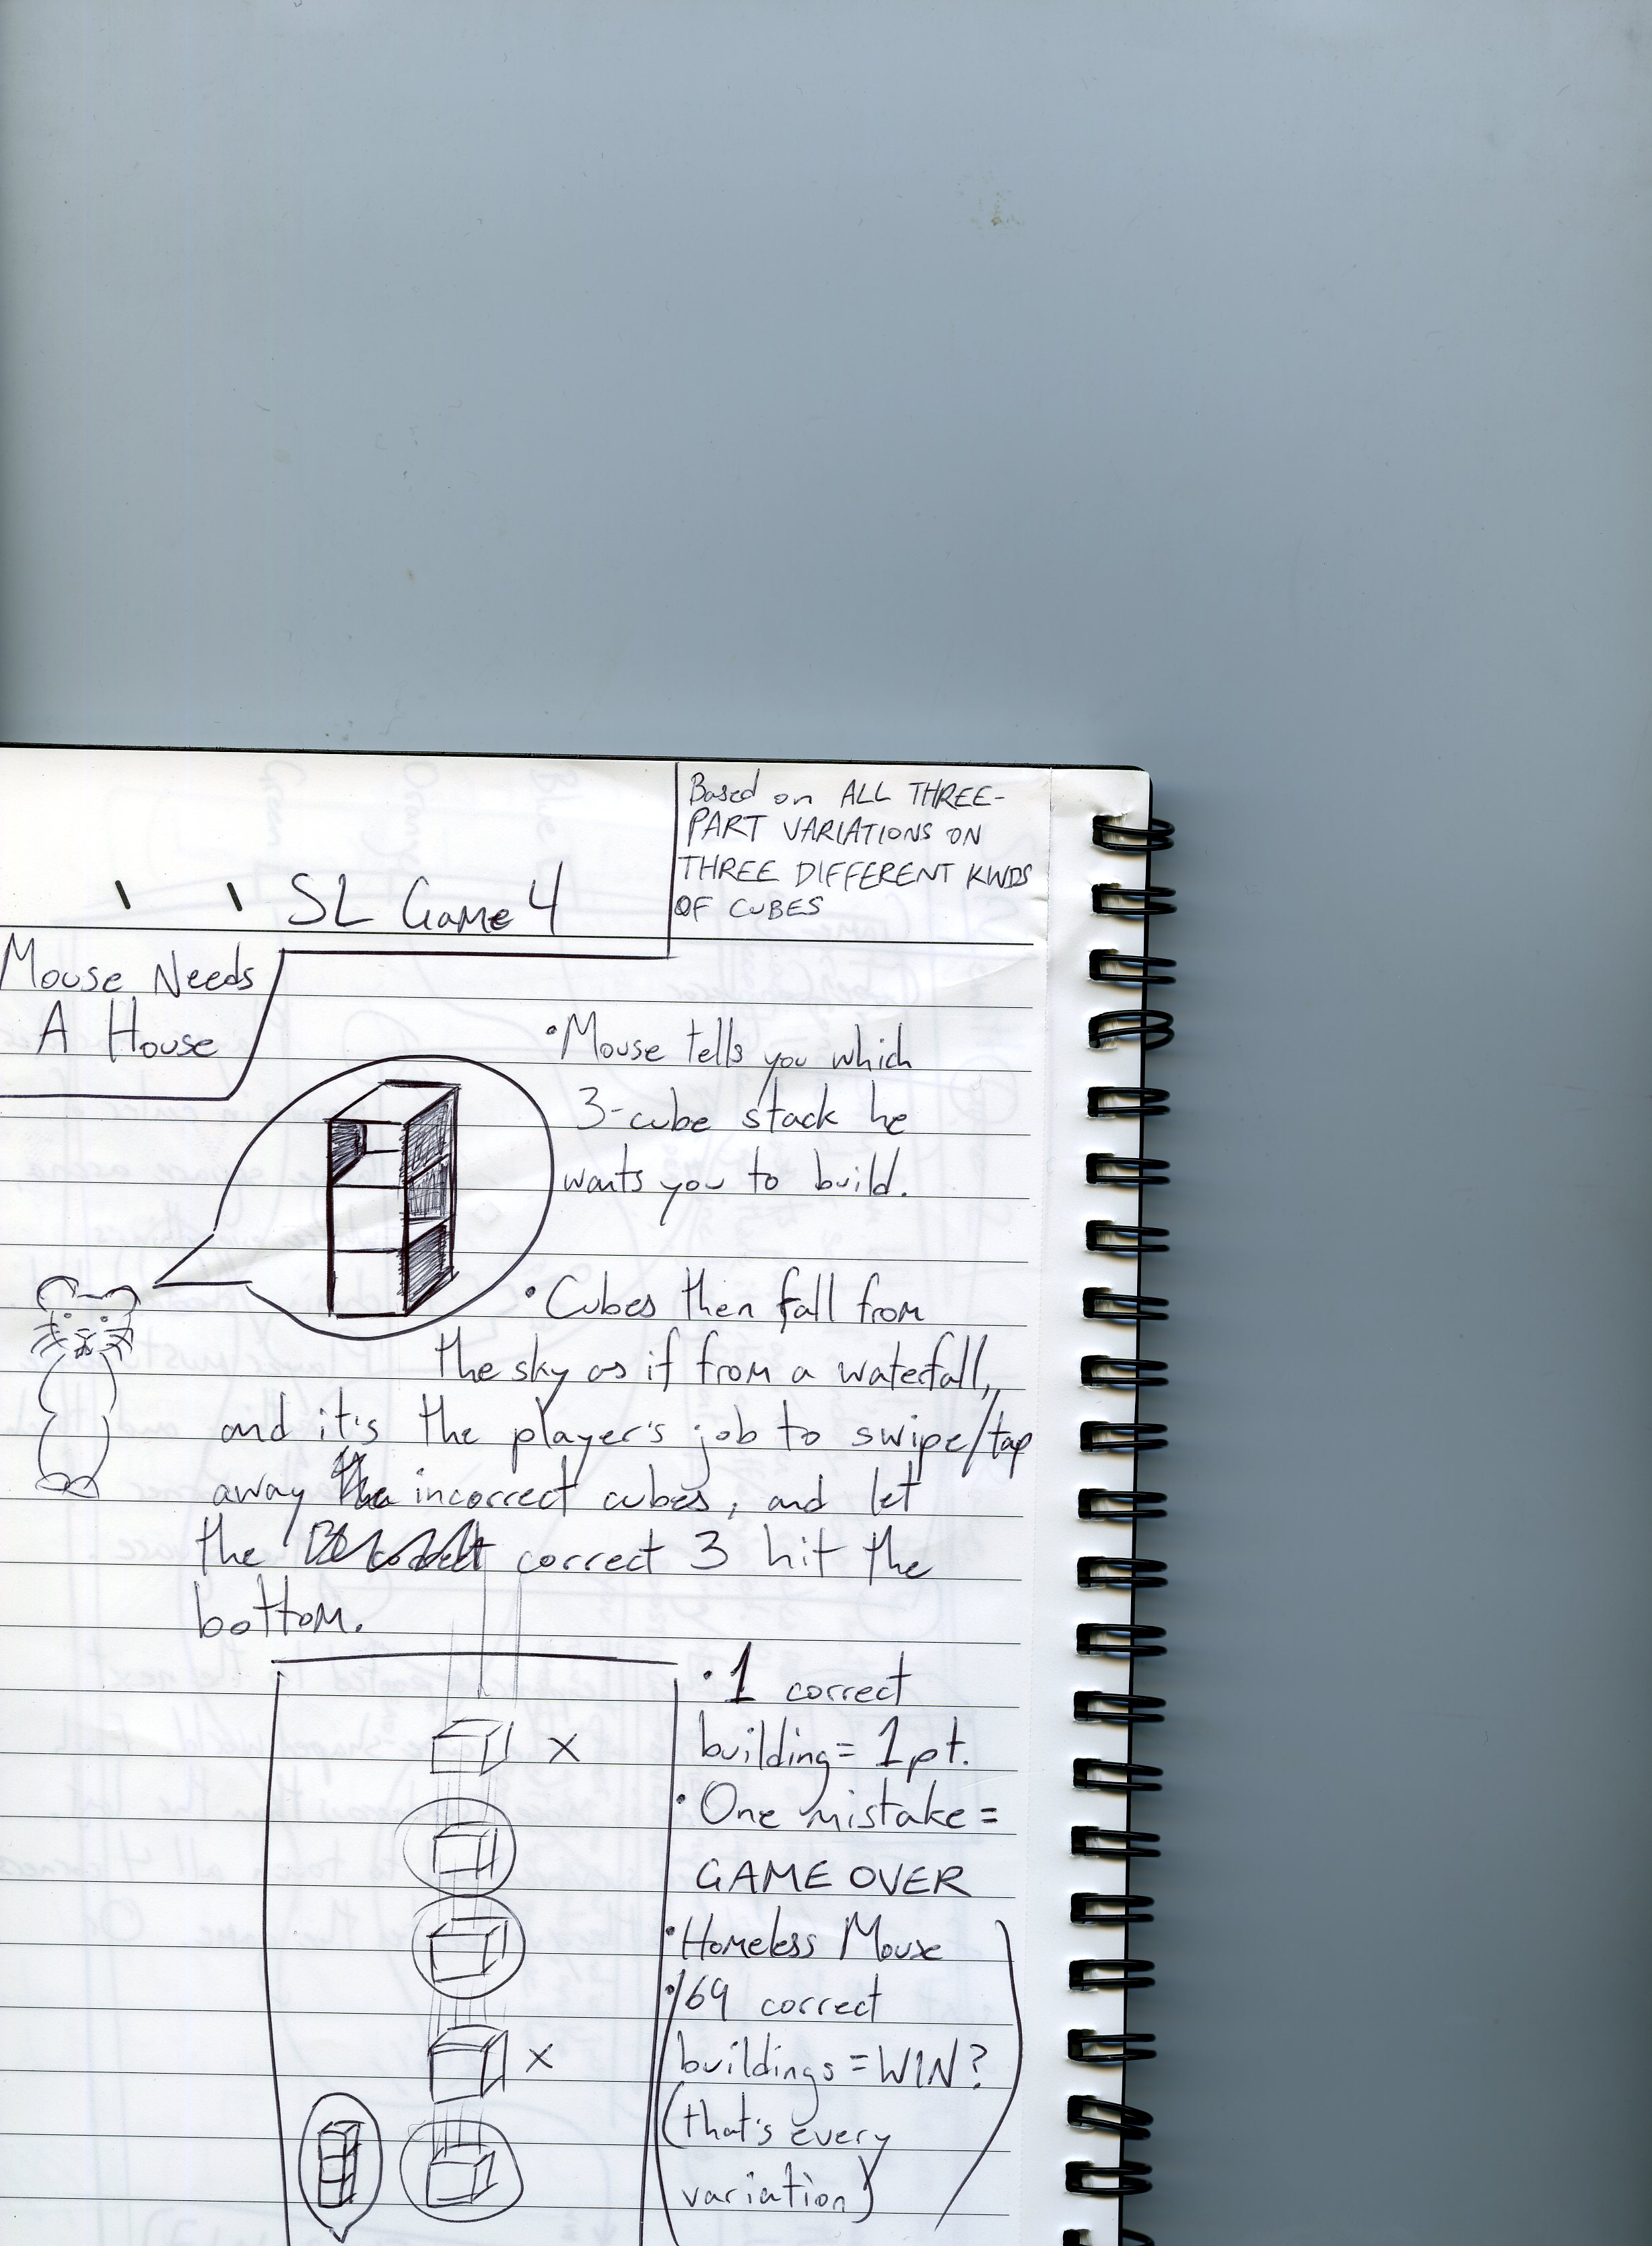 Based on ALL THREE-
PART VARIATIONS ON
THREE DIFFERENT KINDS
OF CUBES
SL Game 4
Mouse Needs
A House
•Mouse tells you which
3-cube stack he
wants you to build.
•Cubes then fall from
the sky as if from a waterfall,
and it's the player's job to swipe/tap
away the incorrect cubes, and let
the correct 3 hit the
bottom.
•1 correct
building= 1pt.
•One mistake =
GAME OVER
•Homeless Mouse
•169 correct
buildings = WIN?
(that's every
variation)
X
X